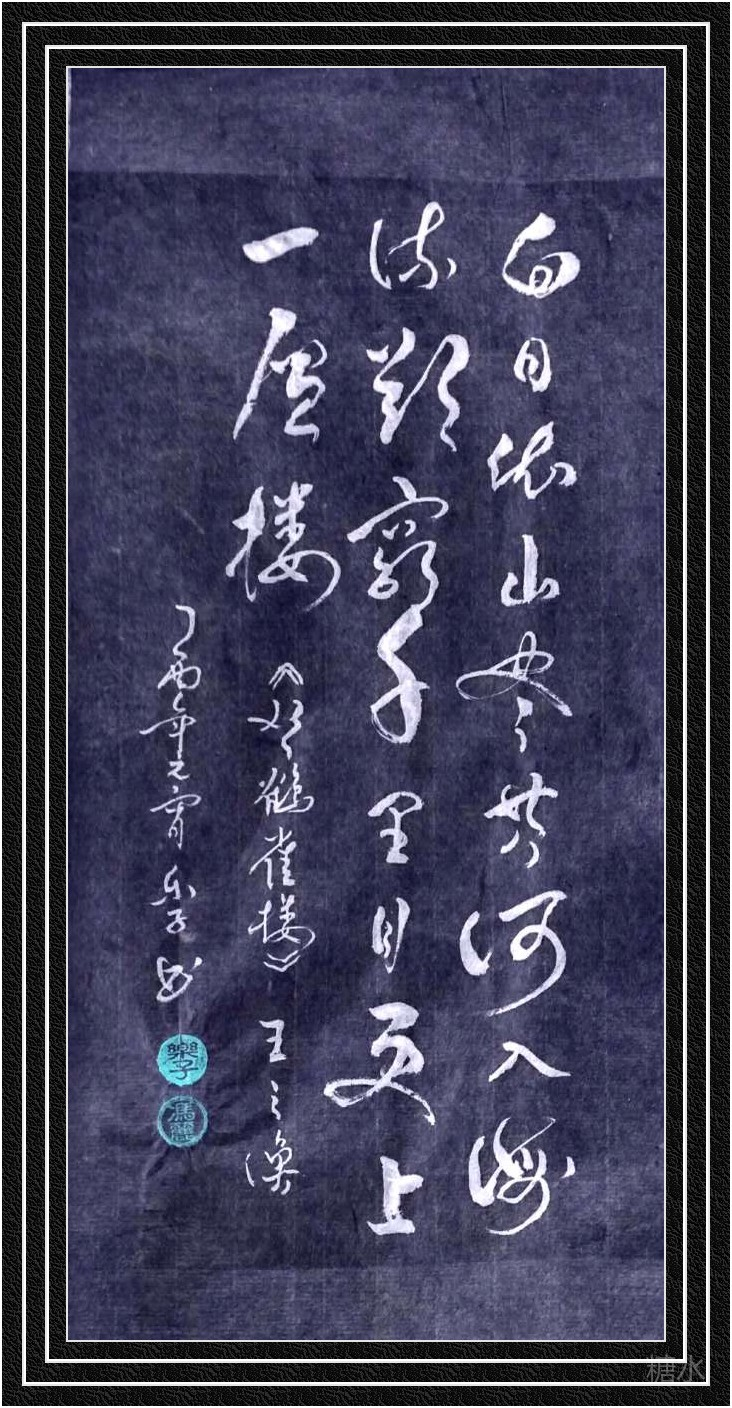 白日依山尽黄河入海
流欲窮千里目更上
一層楼《登鶴雀楼》王之涣
丁酉年元宵乐子书
樂子
糖水